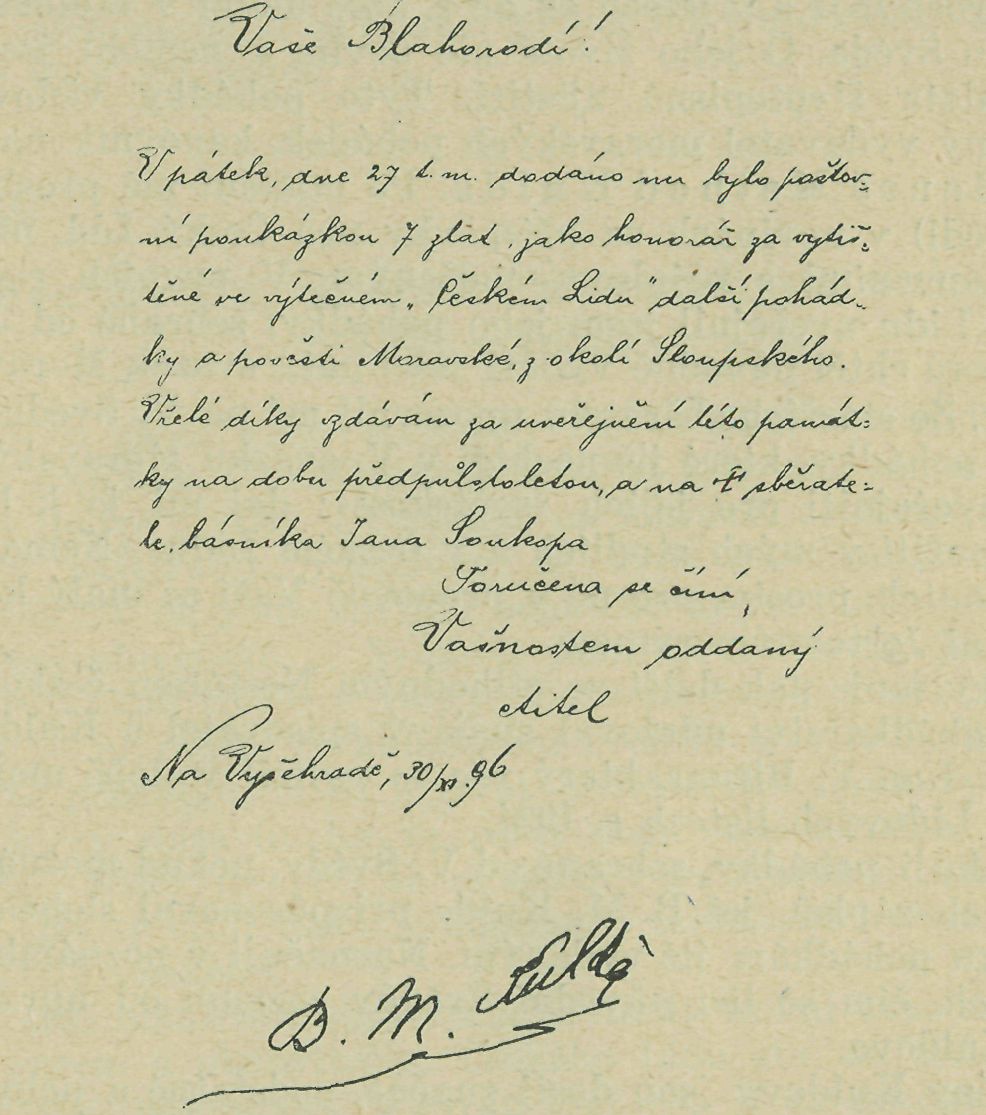 Vaše Blahorodí!
V pátek, dne 27 t. m. dodáno mu bylo poštov-
ní poukázkou 7 zlat. jako honorář za vytiš-
těné ve výtečném „Českém Lidu" další pohád-
ky a pověsti Moravské, z okolí Sloupského.
Vřelé díky vzdávám za uveřejnění této památ-
ky na dobu předpůlstoletou, a na † sběrate-
le, básníka Jana Soukopa
Poručena se činí,
Vašnostem oddaný
ctitel
Na Vyšehradě, 30/XI. 96
B. M. Kulda